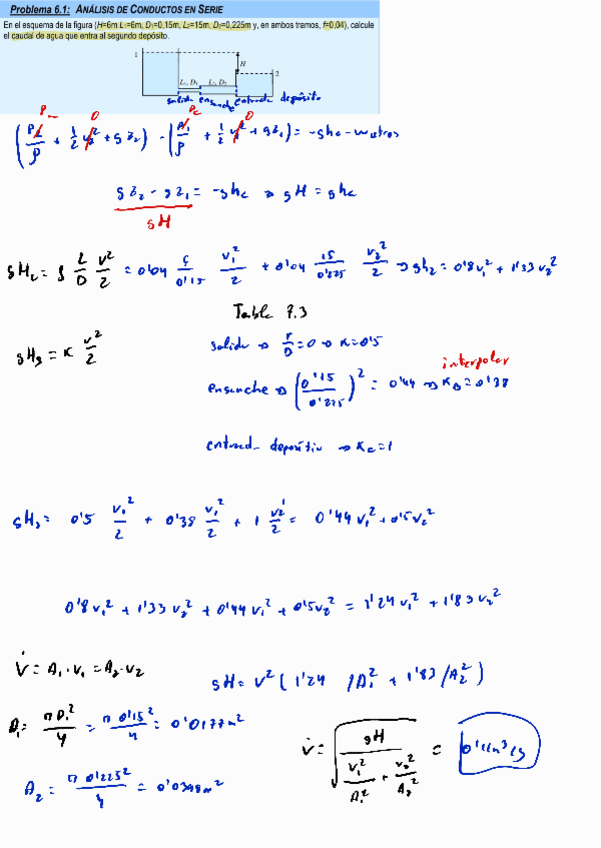 Problema 6.1: ANÁLISIS DE CONDUCTOS EN SERIE
En el esquema de la figura (H=6m L₁=6m, D₁=0,15m, L₂=15m, D₂=0,225m y, en ambos tramos, f=0,04), calcule
el caudal de agua que entra al segundo depósito.
1
H
2
L₁, D₁ L₂, D₂
salida ensanche entrada depósito
(P₂/ρ + 1/2 v₂² + g z₂) - (P₁/ρ + 1/2 v₁² + g z₁) = -g h_L - w
g z₂ - g z₁ = -g h_L → g H = g h_L
g H
g H_L = f L/D v²/2 = 0'04 6/0'15 v₁²/2 + 0'04 15/0'225 v₂²/2 → g h_L = 0'8 v₁² + 1'33 v₂²
Tabla 7.3
g H_s = K v²/2
salida → r/D = 0 → K = 0'5
interpolar
ensanche → (0'15/0'225)² = 0'44 → K = 0'38
entrada depósito → K = 1
g H_s = 0'5 v₁²/2 + 0'38 v₁²/2 + 1 v₂²/2 = 0'44 v₁² + 0'5 v₂²
0'8 v₁² + 1'33 v₂² + 0'44 v₁² + 0'5 v₂² = 1'24 v₁² + 1'83 v₂²
V̇ = A₁·v₁ = A₂·v₂
g H = V² (1'24 /A₁² + 1'83/A₂²)
A₁ = π D₁²/4 = π 0'15²/4 = 0'0177 m²
V̇ = √(g H / (v₁²/A₁² + v₂²/A₂²)) = 0'11 m³/s
A₂ = π 0'225²/4 = 0'0398 m²